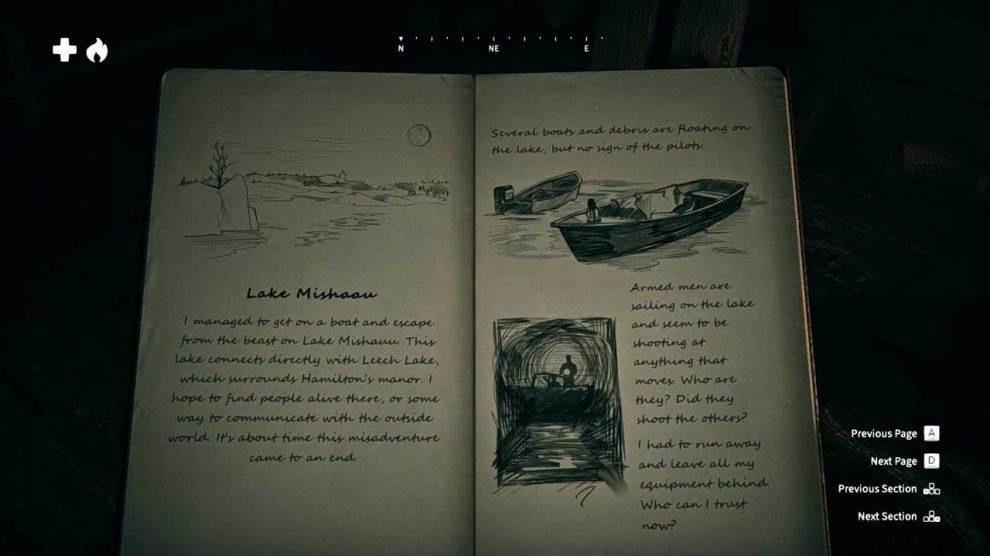 N NE E
Lake Mishaau
I managed to get on a boat and escape
from the beast on Lake Mishauu. This
lake connects directly with Leech Lake,
which surrounds Hamilton's manor. I
hope to find people alive there, or some
way to communicate with the outside
world. It's about time this misadventure
came to an end.
Several boats and debris are floating on
the lake, but no sign of the pilots.
Armed men are
sailing on the lake
and seem to be
shooting at
anything that
moves. Who are
they? Did they
shoot the others?
I had to run away
and leave all my
equipment behind.
Who can I trust
now?
?
Previous Page A
Next Page D
Previous Section
Next Section